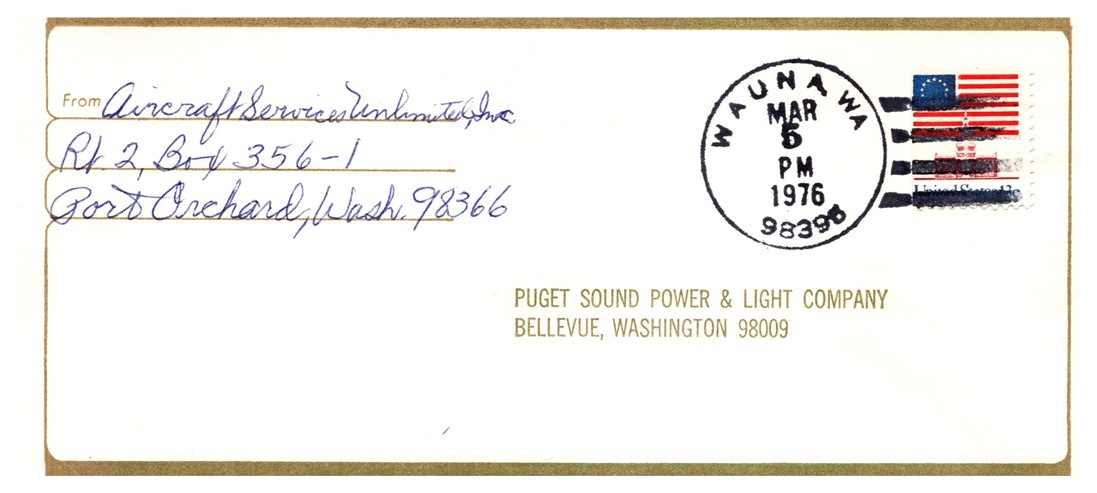 From Aircraft Services Unlimited, Inc
Rt. 2, Box 356-1
Port Orchard, Wash. 98366
WAUNA, WA
MAR
5
PM
1976
98395
United States 13c
PUGET SOUND POWER & LIGHT COMPANY
BELLEVUE, WASHINGTON 98009